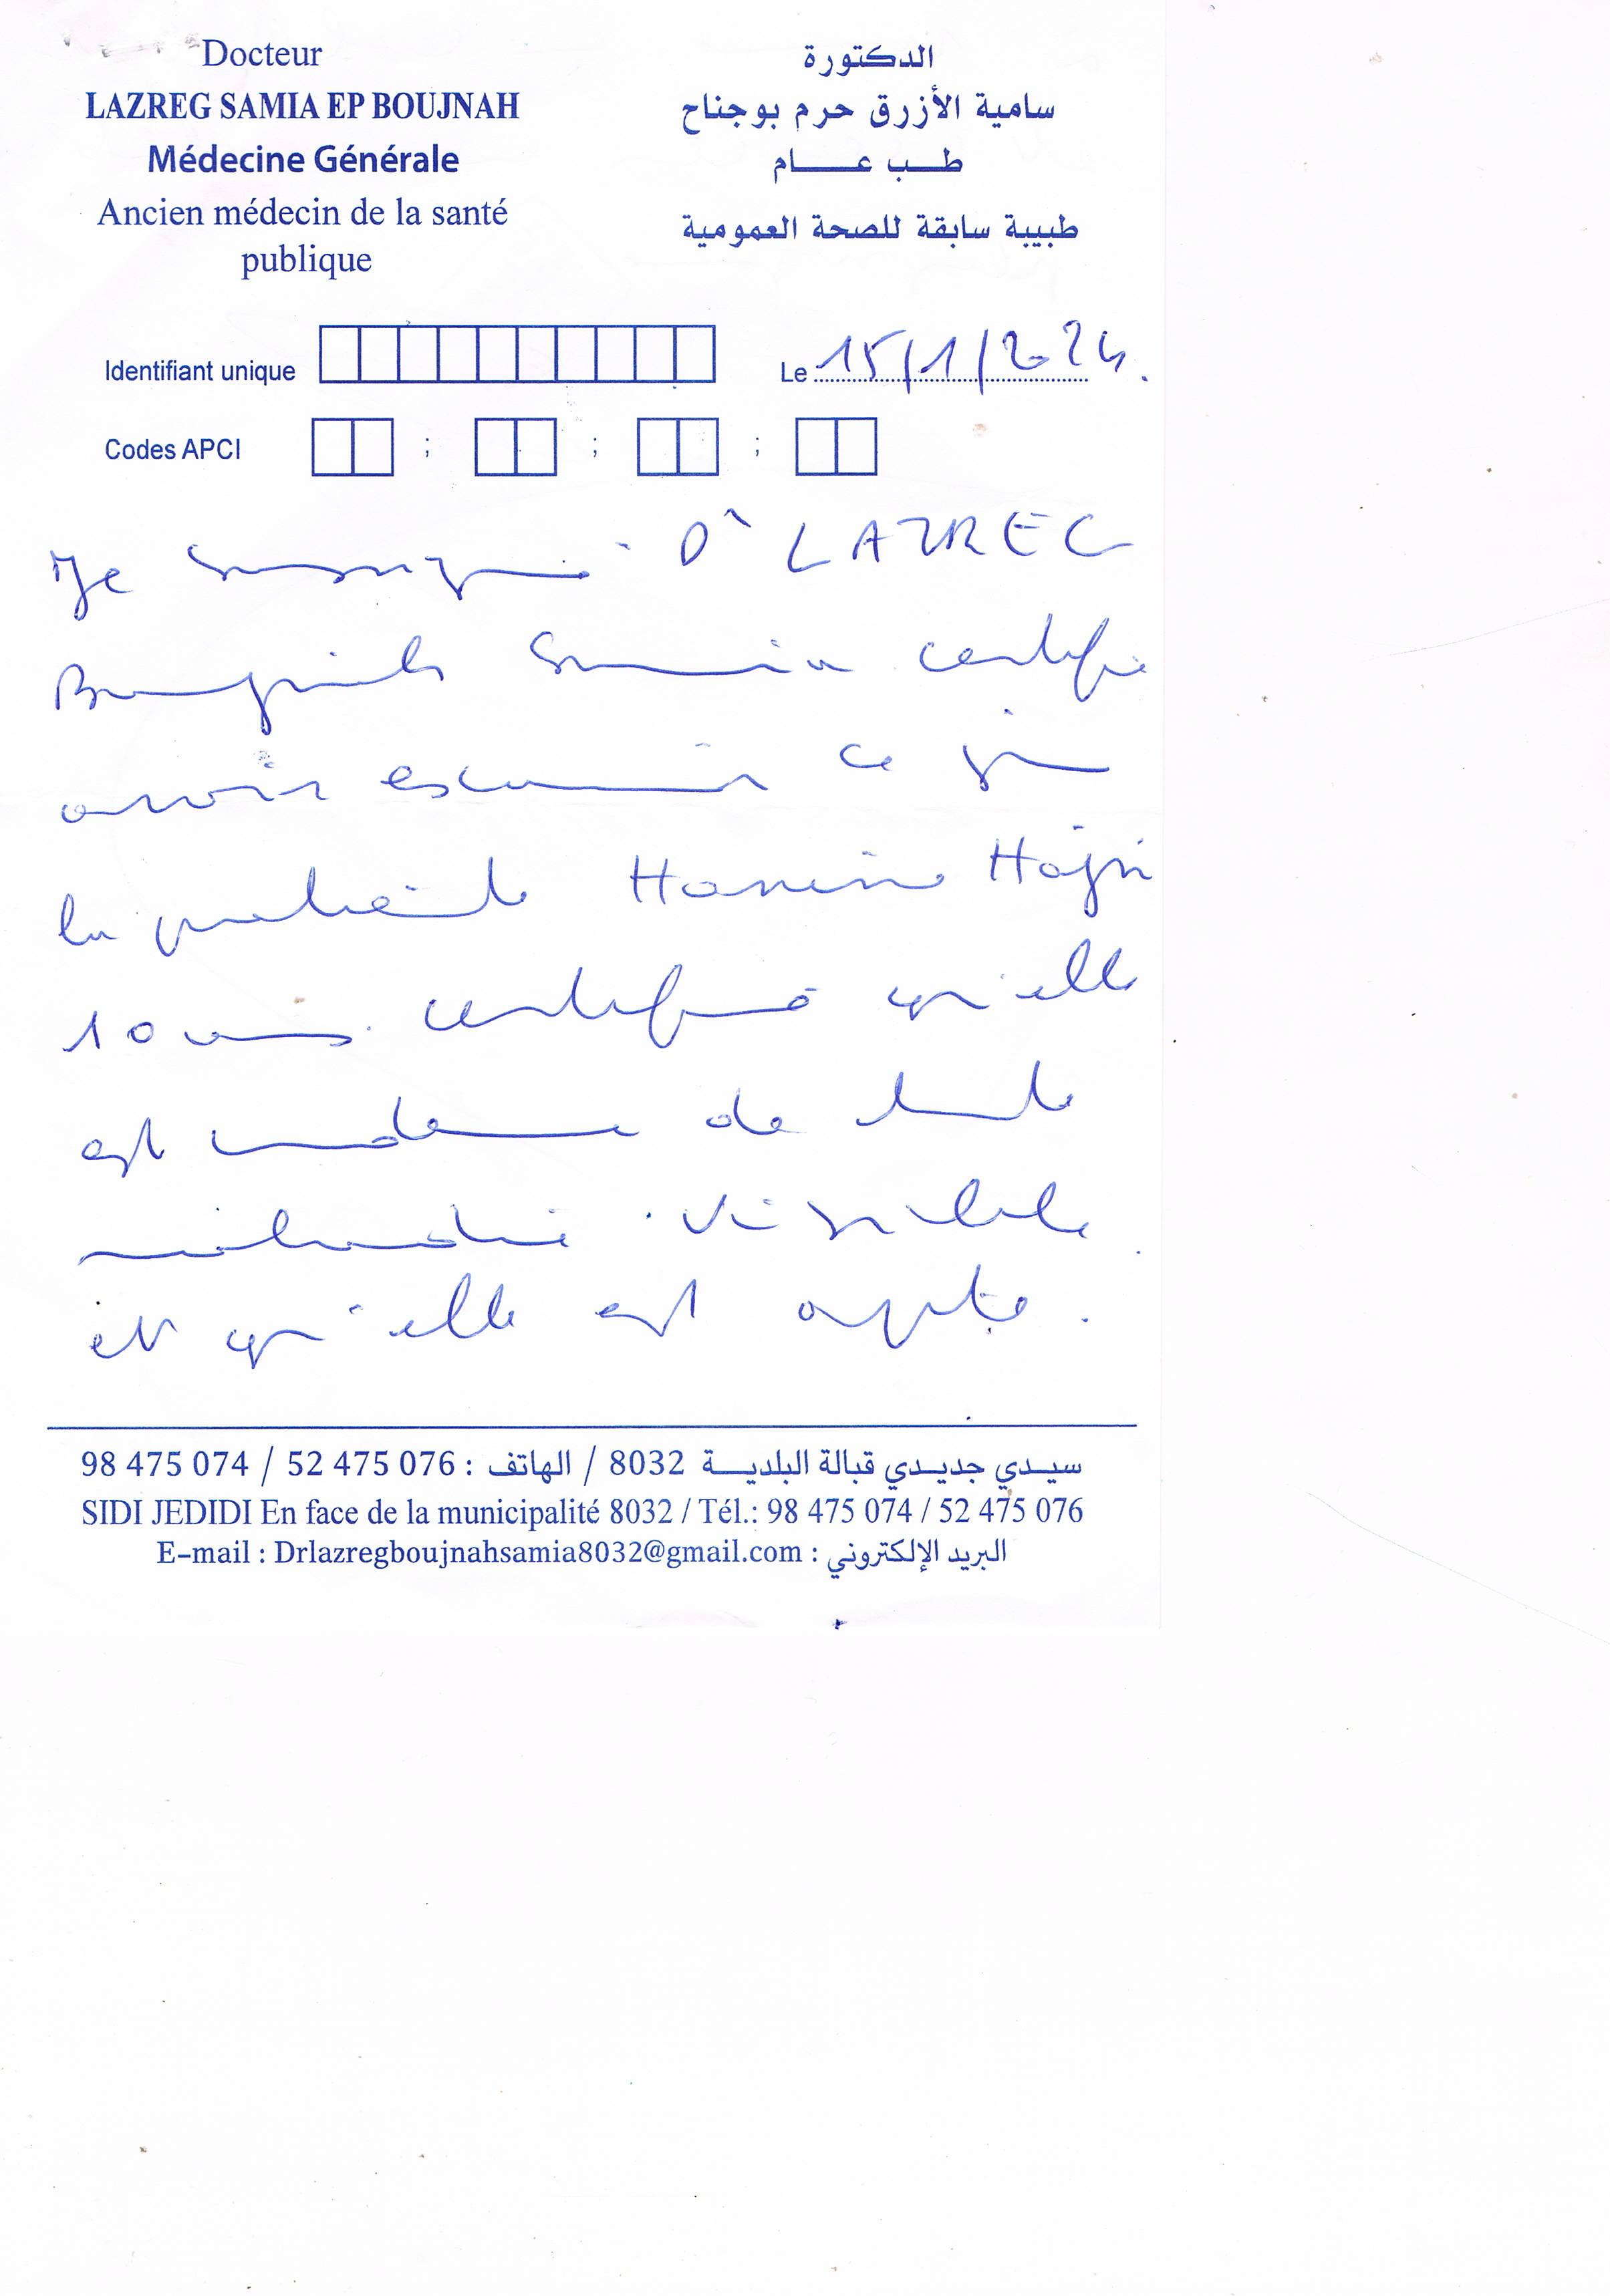 Docteur
LAZREG SAMIA EP BOUJNAH
Médecine Générale
Ancien médecin de la santé
publique
الدكتورة
سامية الأزرق حرم بوجناح
طب عام
طبيبة سابقة للصحة العمومية
Identifiant unique
Le 15/1/2024.
Codes APCI ; ; ;
Je soussigné Dr LAZREG
Boujnah Samia certifie
avoir examiné ce jour
la patiente Hajri
10 ans. certifie qu'elle
est indemne de toute
maladie
et qu'elle est apte.
سيدي جديدي قبالة البلدية 8032 / الهاتف : 98 475 074 / 52 475 076
SIDI JEDIDI En face de la municipalité 8032 / Tél.: 98 475 074 / 52 475 076
E-mail : Drlazregboujnahsamia8032@gmail.com : البريد الإلكتروني